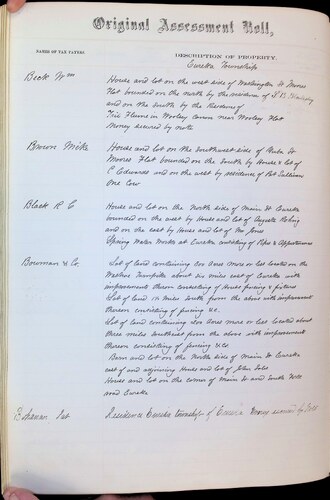 Original Assessment Roll,
NAMES OF TAX PAYERS
DESCRIPTION OF PROPERTY.
Eureka Township
Beck Wm
House and lot on the west side of Washington St Moores
Flat bounded on the north by the residence of
and on the south by the Residence of
in Worley near Worley Flat
Money secured by note
Bacon Mike
House and lot on the Southwest side of St
Moores Flat bounded on the South by House & lot of
C Edwards and on the west by residence of Pat Sullivan
One Cow
Black R C
House and lot on the North side of Main St Eureka
bounded on the west by House and lot of
and on the east by House and lot of Mr Jones
Spring Water Works at Eureka consisting of Pipe & Appertances
Bowman & Co.
Lot of land containing 200 acres more or less located on the
Turnpike about six miles east of Eureka with
improvements thereon consisting of House fencing & fixtures
Lot of land 1½ miles South from the above with improvement
thereon consisting of fencing &c.
Lot of land containing 200 acres more or less located about
three miles Southeast from the above with improvement
thereon consisting of fencing &c.
Barn and lot on the North side of Main St Eureka
east of and adjoining House and lot of
House and lot on the corner of Main St and South
road Eureka
Bohanan Jas
Residence Eureka township of Eureka Money secured by